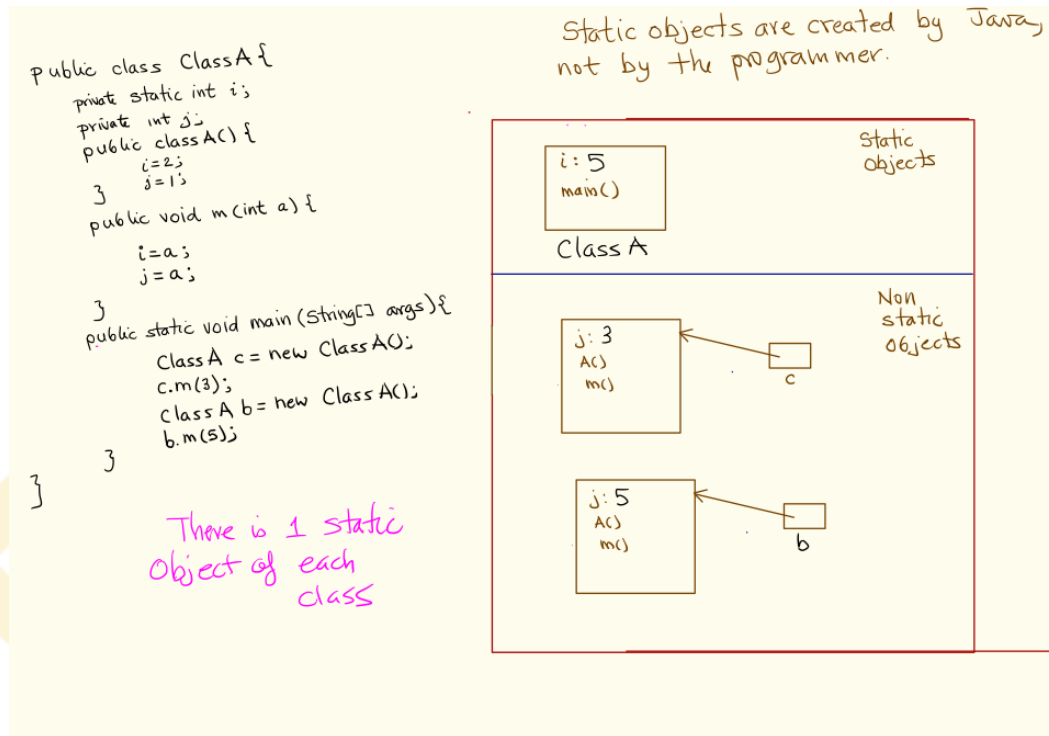 public class ClassA {
private static int i;
private int j;
public classA() {
i=2;
j=1;
}
public void m(int a) {
i=a;
j=a;
}
public static void main(String[] args){
ClassA c = new ClassA();
c.m(3);
ClassA b= new ClassA();
b.m(5);
}
}
There is 1 static
object of each
class
Static objects are created by Java,
not by the programmer.
Static
objects
i: 5
main()
Class A
Non
static
objects
j: 3
A()
m()
c
j: 5
A()
m()
b